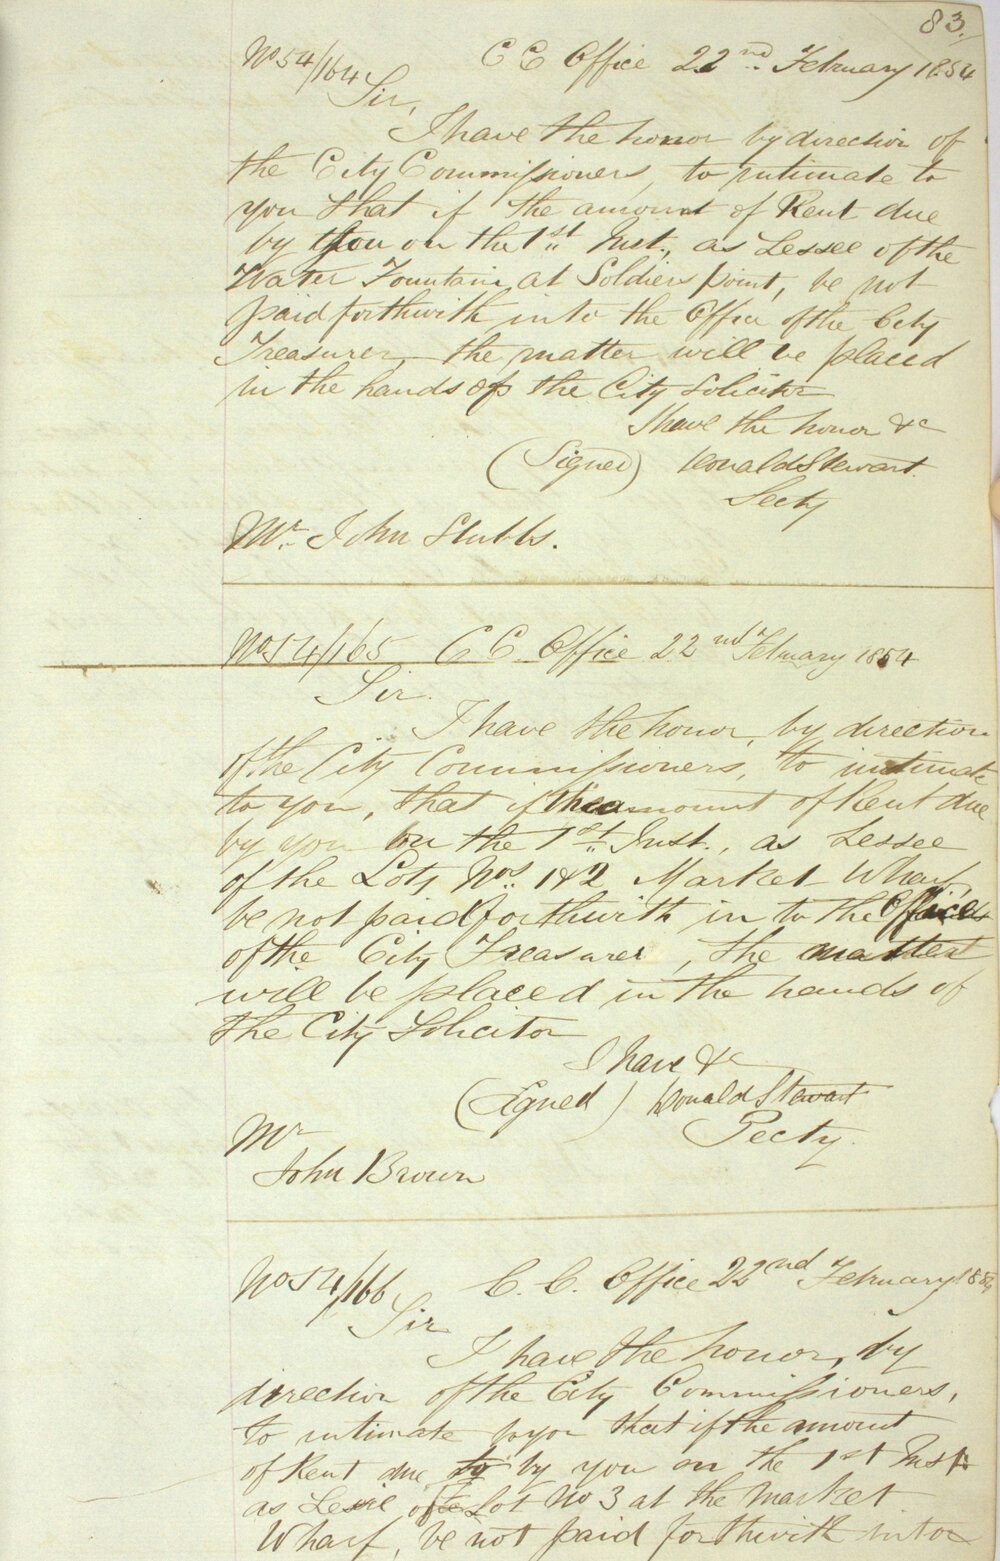 83.
No 54/164 C C Office 22nd February 1854
Sir,
I have the honor by direction of
the City Commissioners, to intimate to
you that if the amount of Rent due
by you on the 1st Inst., as Lessee of the
Water Fountain at Soldiers point, be not
paid forthwith into the Office of the City
Treasurer, the matter will be placed
in the hands of the City Solicitor
I have the honor &c
(Signed) Donald Stewart.
Secty
Mr. John Stubbs.
No 54/165 C C Office 22nd February 1854
Sir.
I have the honor, by direction
of the City Commissioners, to intimate
to you, that if the amount of Rent due
by you on the 1st Inst., as Lessee
of the Lots Nos. 1 & 2 Market Wharf,
be not paid forthwith in to the Office
of the City Treasurer, the matter
will be placed in the hands of
the City Solicitor
I have &c
(Signed) Donald Stewart
Secty.
Mr
John Brown
No 54/166 C. C. Office 22nd February 1854
Sir
I have the honor, by
direction of the City Commissioners,
to intimate to you that if the amount
of Rent due by you on the 1st Inst
as Lessee of the Lot No 3 at the Market
Wharf, be not paid forthwith into